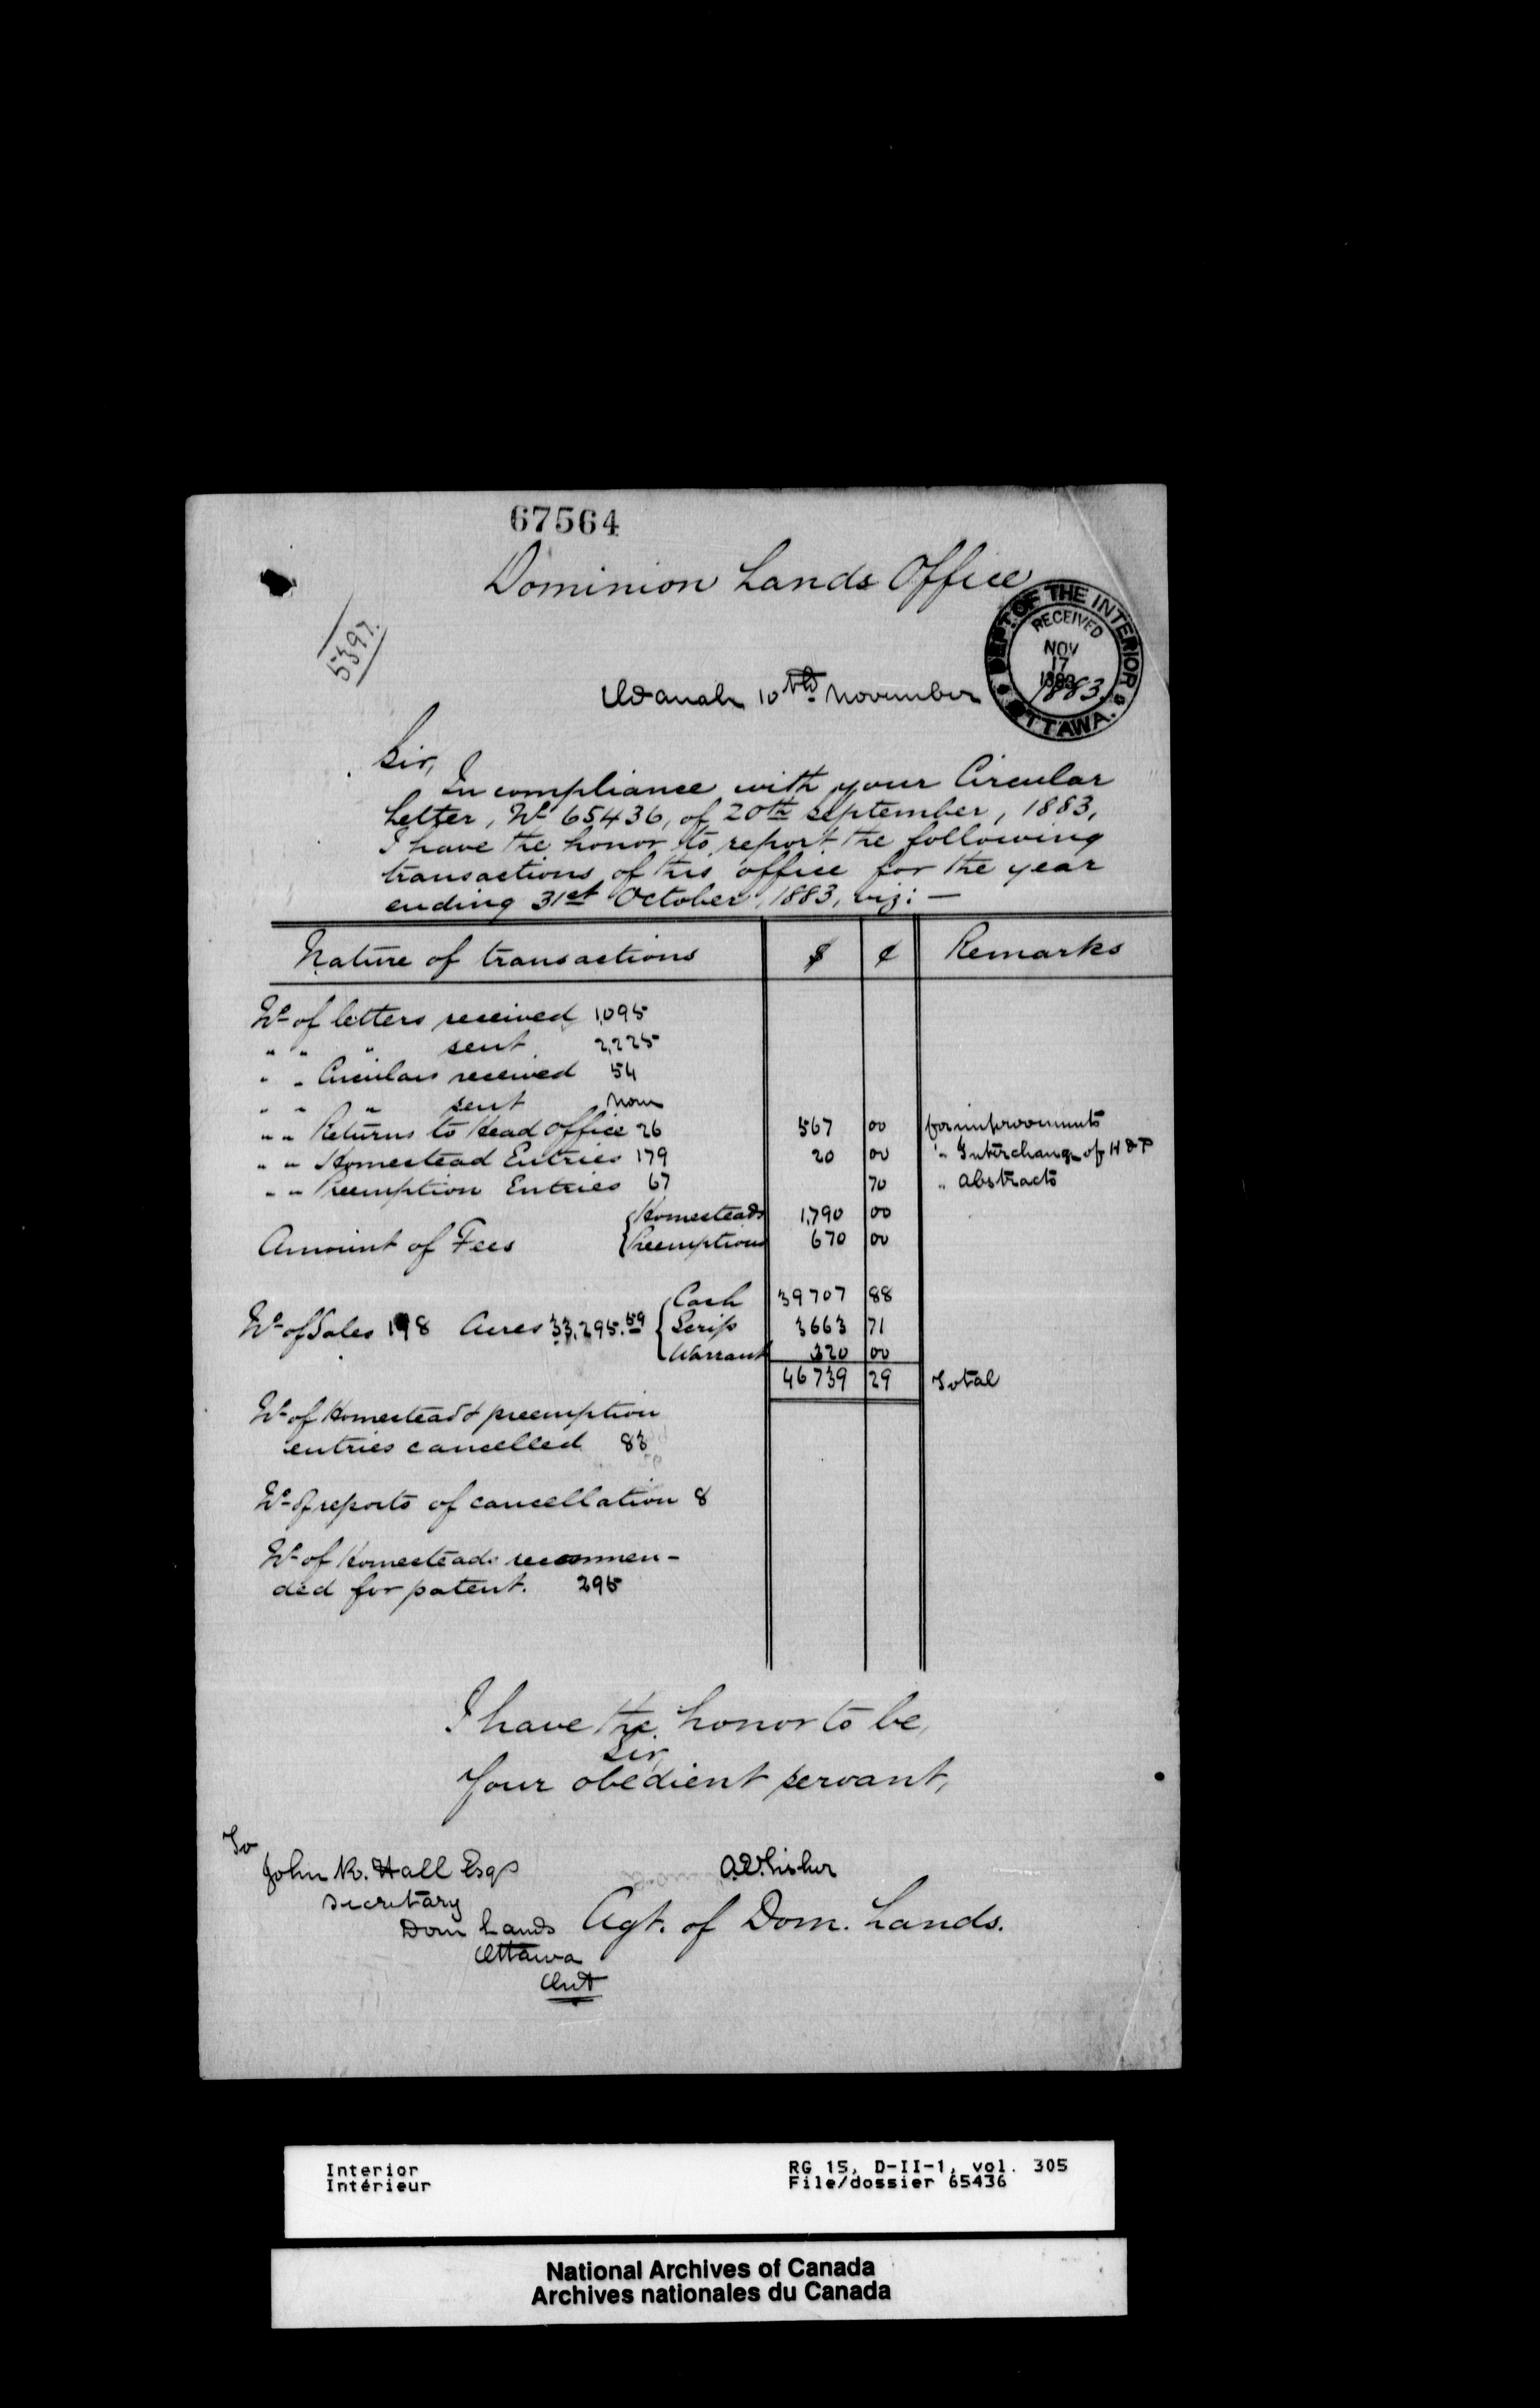 67564
Dominion Lands Office
5397.
DEPT. OF THE INTERIOR
RECEIVED
NOV
17
1883
OTTAWA.
Odanah 10th November 1883.
Sir,
In compliance with your Circular
Letter, No 65436, of 20th September, 1883,
I have the honor to report the following
transactions of this office for the year
ending 31st October, 1883, viz: —
Nature of transactions $ ¢ Remarks
No of letters received 1,095
" " " sent 2,225
" " Circulars received 54
" " " sent None
" " Returns to Head Office 26 567 00 for improvements
" " Homestead Entries 179 20 00 " Interchange of H & P
" " Preemption Entries 67 70 " Abstracts
Amount of Fees { Homesteads 1,790 00
{ Preemptions 670 00
{ Cash 39707 88
No of Sales 198 Acres 33,295.59 { Scrip 3663 71
{ Warrant 320 00
46739 29 Total
No of Homestead & preemption
entries cancelled 83
No of reports of cancellation 8
No of Homesteads recommen-
ded for patent. 295
I have the honor to be,
Sir,
Your obedient servant,
To
John R. Hall Esq
A.E. Fisher
Secretary
Dom Lands Agt. of Dom. Lands.
Ottawa
Ont
Interior RG 15, D-II-1, vol. 305
Intérieur File/dossier 65436
National Archives of Canada
Archives nationales du Canada